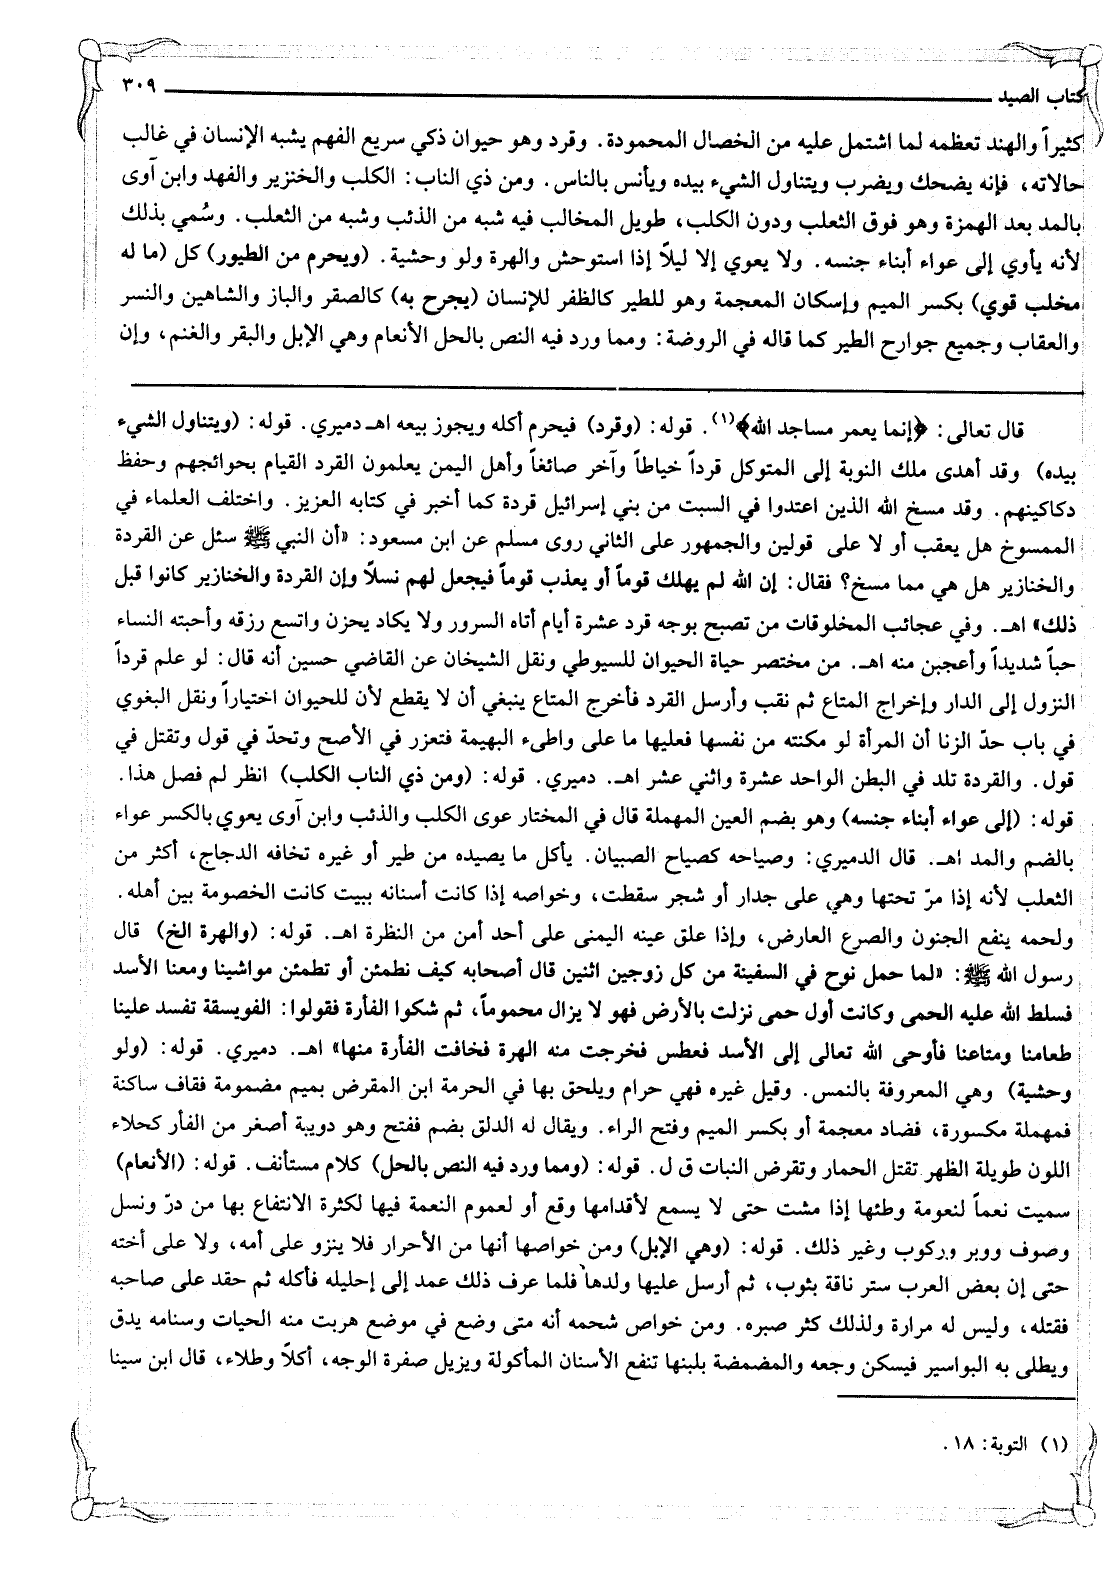 كتاب الصيد ٣٠٩
كثيراً والهند تعظمه لما اشتمل عليه من الخصال المحمودة. وقرد وهو حيوان ذكي سريع الفهم يشبه الإنسان في غالب
حالاته، فإنه يضحك ويضرب ويتناول الشيء بيده ويأنس بالناس. ومن ذي الناب: الكلب والخنزير والفهد وابن آوى
بالمد بعد الهمزة وهو فوق الثعلب ودون الكلب، طويل المخالب فيه شبه من الذئب وشبه من الثعلب. وسُمي بذلك
لأنه يأوي إلى عواء أبناء جنسه. ولا يعوي إلا ليلاً إذا استوحش والهرة ولو وحشية. (ويحرم من الطيور) كل (ما له
مخلب قوي) بكسر الميم وإسكان المعجمة وهو للطير كالظفر للإنسان (يجرح به) كالصقر والباز والشاهين والنسر
والعقاب وجميع جوارح الطير كما قاله في الروضة: ومما ورد فيه النص بالحل الأنعام وهي الإبل والبقر والغنم، وإن
قال تعالى: ﴿إنما يعمر مساجد الله﴾(١). قوله: (وقرد) فيحرم أكله ويجوز بيعه اهـ دميري. قوله: (ويتناول الشيء
بيده) وقد أهدى ملك النوبة إلى المتوكل قرداً خياطاً وآخر صائغاً وأهل اليمن يعلمون القرد القيام بحوائجهم وحفظ
دكاكينهم. وقد مسخ الله الذين اعتدوا في السبت من بني إسرائيل قردة كما أخبر في كتابه العزيز. واختلف العلماء في
الممسوخ هل يعقب أو لا على قولين والجمهور على الثاني روى مسلم عن ابن مسعود: «أن النبي ﷺ سئل عن القردة
والخنازير هل هي مما مسخ؟ فقال: إن الله لم يهلك قوماً أو يعذب قوماً فيجعل لهم نسلاً وإن القردة والخنازير كانوا قبل
ذلك» اهـ. وفي عجائب المخلوقات من تصبح بوجه قرد عشرة أيام أتاه السرور ولا يكاد يحزن واتسع رزقه وأحبته النساء
حباً شديداً وأعجبن منه اهـ. من مختصر حياة الحيوان للسيوطي ونقل الشيخان عن القاضي حسين أنه قال: لو علم قرداً
النزول إلى الدار وإخراج المتاع ثم نقب وأرسل القرد فأخرج المتاع ينبغي أن لا يقطع لأن للحيوان اختياراً ونقل البغوي
في باب حدّ الزنا أن المرأة لو مكنته من نفسها فعليها ما على واطىء البهيمة فتعزر في الأصح وتحدّ في قول وتقتل في
قول. والقردة تلد في البطن الواحد عشرة واثني عشر اهـ. دميري. قوله: (ومن ذي الناب الكلب) انظر لم فصل هذا.
قوله: (إلى عواء أبناء جنسه) وهو بضم العين المهملة قال في المختار عوى الكلب والذئب وابن آوى يعوي بالكسر عواء
بالضم والمد اهـ. قال الدميري: وصياحه كصياح الصبيان. يأكل ما يصيده من طير أو غيره تخافه الدجاج، أكثر من
الثعلب لأنه إذا مرّ تحتها وهي على جدار أو شجر سقطت، وخواصه إذا كانت أسنانه ببيت كانت الخصومة بين أهله.
ولحمه ينفع الجنون والصرع العارض، وإذا علق عينه اليمنى على أحد أمن من النظرة اهـ. قوله: (والهرة الخ) قال
رسول الله ﷺ: «لما حمل نوح في السفينة من كل زوجين اثنين قال أصحابه كيف نطمئن أو تطمئن مواشينا ومعنا الأسد
فسلط الله عليه الحمى وكانت أول حمى نزلت بالأرض فهو لا يزال محموماً، ثم شكوا الفأرة فقولوا: الفويسقة تفسد علينا
طعامنا ومتاعنا فأوحى الله تعالى إلى الأسد فعطس فخرجت منه الهرة فخافت الفأرة منها» اهـ. دميري. قوله: (ولو
وحشية) وهي المعروفة بالنمس. وقيل غيره فهي حرام ويلحق بها في الحرمة ابن المقرض بميم مضمومة فقاف ساكنة
فمهملة مكسورة، فضاد معجمة أو بكسر الميم وفتح الراء. ويقال له الدلق بضم ففتح وهو دويبة أصغر من الفأر كحلاء
اللون طويلة الظهر تقتل الحمار وتقرض النبات ق ل. قوله: (ومما ورد فيه النص بالحل) كلام مستأنف. قوله: (الأنعام)
سميت نعماً لنعومة وطئها إذا مشت حتى لا يسمع لأقدامها وقع أو لعموم النعمة فيها لكثرة الانتفاع بها من درّ ونسل
وصوف ووبر وركوب وغير ذلك. قوله: (وهي الإبل) ومن خواصها أنها من الأحرار فلا ينزو على أمه، ولا على أخته
حتى إن بعض العرب ستر ناقة بثوب، ثم أرسل عليها ولدها فلما عرف ذلك عمد إلى إحليله فأكله ثم حقد على صاحبه
فقتله، وليس له مرارة ولذلك كثر صبره. ومن خواص شحمه أنه متى وضع في موضع هربت منه الحيات وسنامه يدق
ويطلى به البواسير فيسكن وجعه والمضمضة بلبنها تنفع الأسنان المأكولة ويزيل صفرة الوجه، أكلاً وطلاء، قال ابن سينا
(١) التوبة: ١٨.